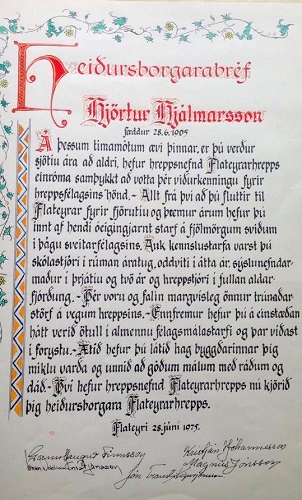 Heiðursborgarabréf
Hjörtur Hjálmarsson
fæddur 28.6.1905
Á þessum tímamótum ævi þinnar, er þú verður
sjötíu ára að aldri, hefur hreppsnefnd Flateyrarhrepps
einróma samþykkt að votta þér viðurkenningu fyrir
hreppsfélagsins hönd. - Allt frá því að þú fluttir til
Flateyrar fyrir fjörutíu og þremur árum hefur þú
innt af hendi óeigingjarnt starf á fjölmörgum sviðum
í þágu sveitarfélagsins. Auk kennslustarfa varst þú
skólastjóri í rúman áratug, oddviti í átta ár, sýslunefndar-
maður í þrjátíu og tvö ár og hreppstjóri í fullan aldar-
fjórðung. - Þér voru og falin margvísleg önnur trúnaðar
störf á vegum hreppsins. - Ennfremur hefur þú á einstæðan
hátt verið ötull í almennu félagsmálastarfi og þar víðast
í forystu. - Ætíð hefur þú látið hag byggðarinnar þig
miklu varða og unnið að góðum málum með ráðum og
dáð. - Því hefur hreppsnefnd Flateyrarhrepps nú kjörið
þig heiðursborgara Flateyrarhrepps.
Flateyri 28. júní 1975.
Kristján Jóhannesson
Magnús Jónsson